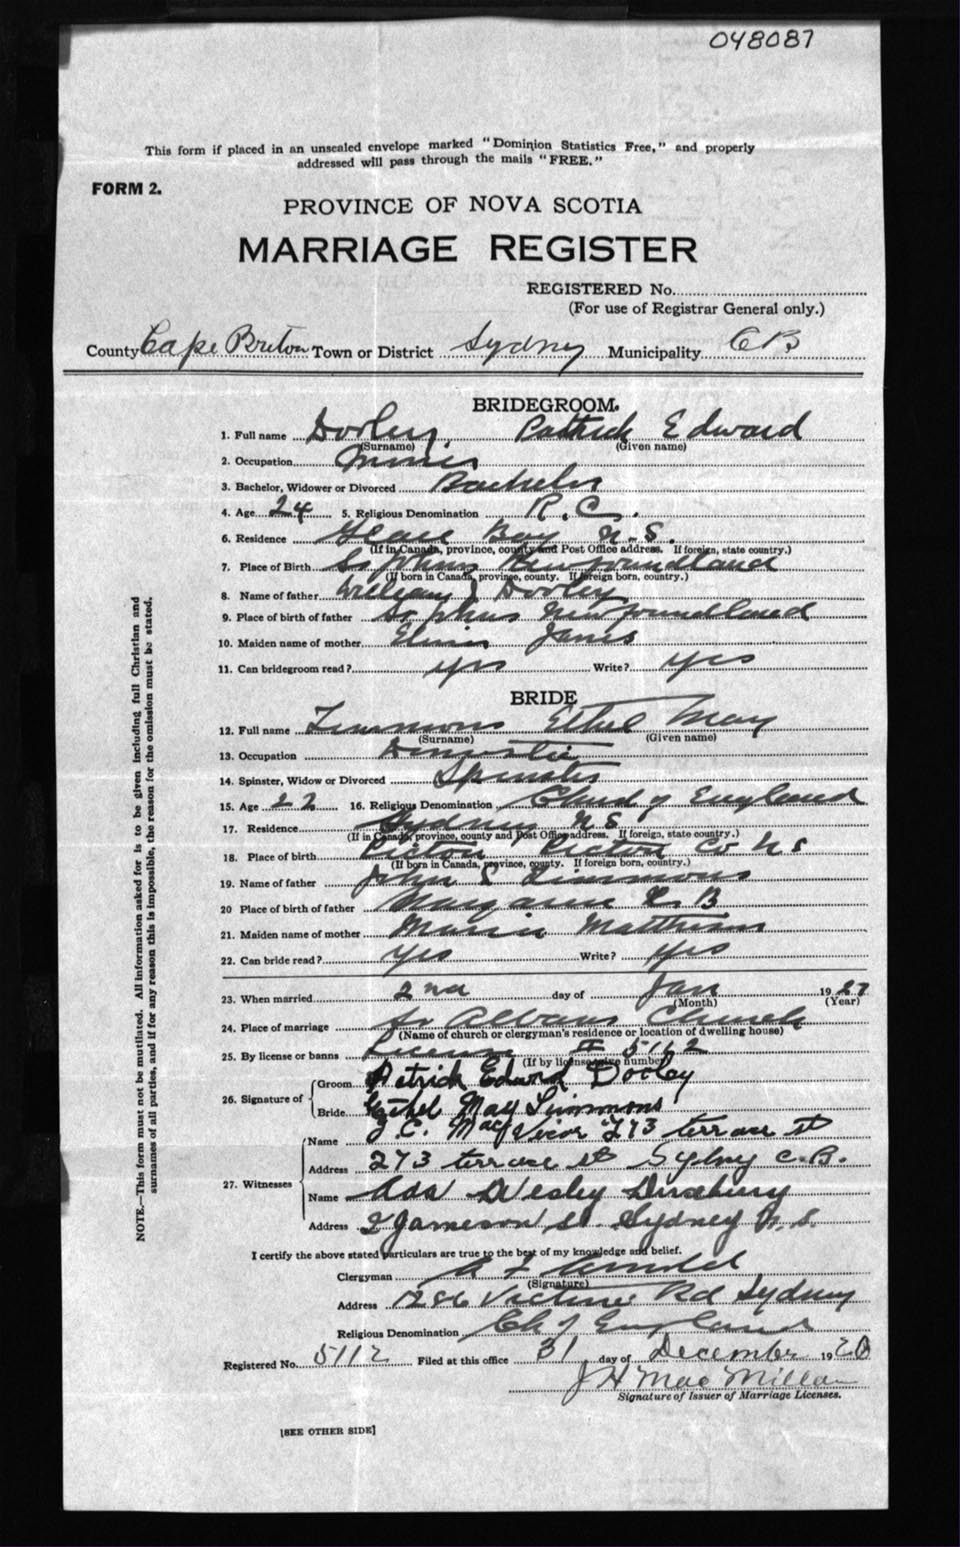 048087
This form if placed in an unsealed envelope marked "Dominion Statistics Free," and properly
addressed will pass through the mails "FREE."
FORM 2.
PROVINCE OF NOVA SCOTIA
MARRIAGE REGISTER
REGISTERED No.
(For use of Registrar General only.)
County Cape Breton Town or District Sydney Municipality C B
BRIDEGROOM.
1. Full name Dooley, Patrick Edward
(Surname) (Given name)
2. Occupation
3. Bachelor, Widower or Divorced Bachelor
4. Age 24 5. Religious Denomination R.C.
6. Residence Glace Bay N.S.
(If in Canada, province, county and Post Office address. If foreign, state country.)
7. Place of Birth St Johns Newfoundland
(If born in Canada, province, county. If foreign born, country.)
8. Name of father William J Dooley
9. Place of birth of father St Johns Newfoundland
10. Maiden name of mother Janes
11. Can bridegroom read? yes Write? yes
BRIDE
12. Full name Timmons Ethel May
(Surname) (Given name)
13. Occupation Domestic
14. Spinster, Widow or Divorced Spinster
15. Age 22 16. Religious Denomination Church of England
17. Residence Sydney N S
(If in Canada, province, county and Post Office address. If foreign, state country.)
18. Place of birth Pictou Pictou Co N S
(If born in Canada, province, county. If foreign born, country.)
19. Name of father John S Timmons
20 Place of birth of father Margaree C. B
21. Maiden name of mother Matthews
22. Can bride read? yes Write? yes
23. When married 2nd day of Jan 1927
(Month) (Year)
24. Place of marriage St Albans Church
(Name of church or clergyman's residence or location of dwelling house)
25. By license or banns License 5112
(If by license give number)
26. Signature of
Groom Patrick Edward Dooley
Bride Ethel May Timmons
27. Witnesses
Name J. C. MacVicar 273 terrace st
Address 273 terrace st Sydney C.B.
Name Ada Wesley
Address 2 Jameson St. Sydney N.S.
I certify the above stated particulars are true to the best of my knowledge and belief.
Clergyman Arnold
(Signature)
Address 1286 Victoria Rd Sydney
Religious Denomination Ch of England
Registered No. 5112 Filed at this office 31 day of December 1920
J H MacMillan
Signature of Issuer of Marriage Licenses.
[SEE OTHER SIDE]
NOTE.—This form must not be mutilated. All information asked for is to be given including full Christian and
surnames of all parties, and if for any reason this is impossible, the reason for the omission must be stated.